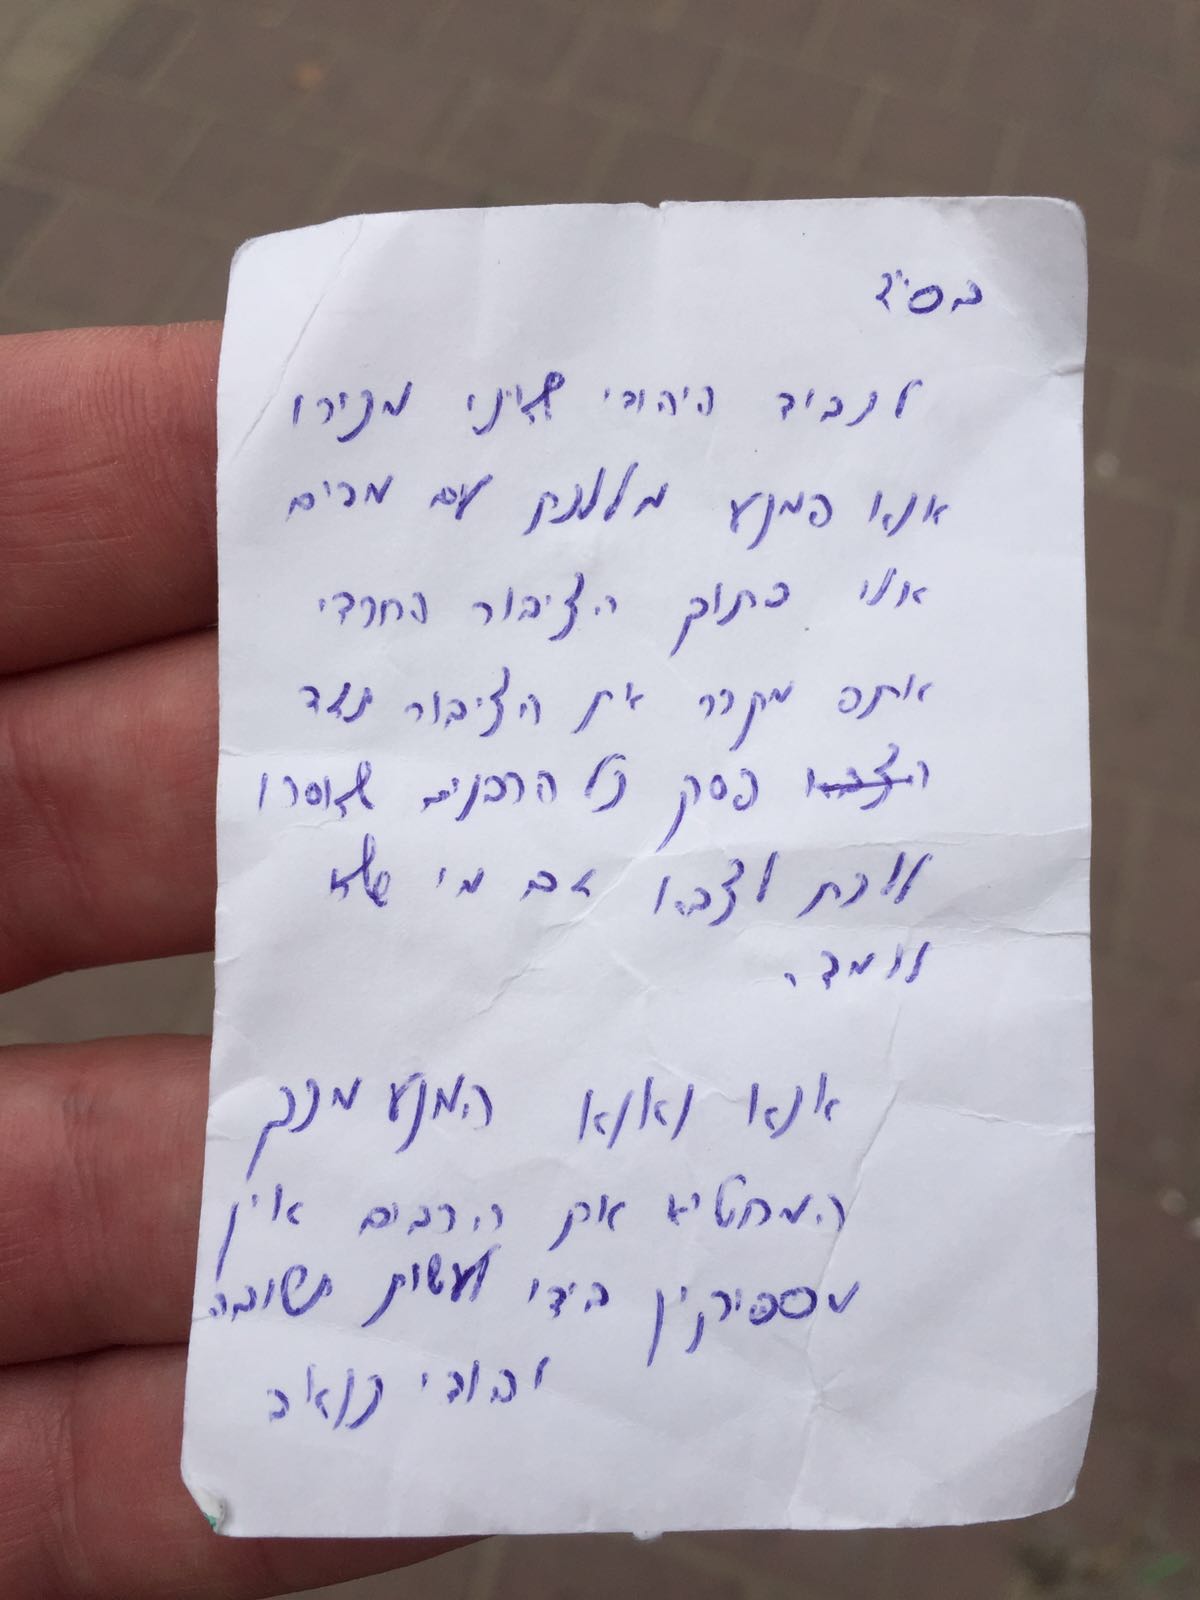 בס"ד
לנכיד היהודי שאיני מכירו
אנא המנע מללכת עם מדים
אלו בתוך הציבור החרדי
אתה מקרר את הציבור נגד
הצבא פסק כל הרבנים שאסרו
ללכת לצבא גם מי שלא
לומד.
אנא ואנא המנע מכך
המחטיא את הרבים אין
מספיקין בידו לעשות תשובה
יהודי כואב